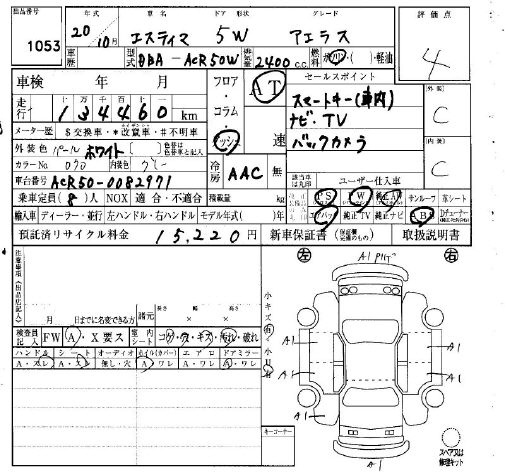 出品番号 1053
年式 20年 10月 車名 エスティマ ドア 形状 5W グレード アエラス
車歴 型式 DBA-ACR50W 排気量 2400 c.c. 燃料 ガソリン・( )・軽油
評価点 4
車検 年 月
走行 134460 km
十 万 千
メーター歴 $交換車・*改竄車・#不明車
外装色 パールホワイト
カラーNo. 070 内装色 グレー
車台番号 ACR50-0082971
フロア・コラム・ダッシュ AT 速
冷房 AAC 無
セールスポイント
スマートキー(車内)
ナビ・TV
バックカメラ
外装 C
内装 C
ユーザー仕入車
乗車定員 (8)人 NOX 適合・不適合 積載量 kg PS PW AW サンルーフ 革シート
輸入車 ディーラー・並行 左ハンドル・右ハンドル モデル年式( )年 エアバッグ 純正TV 純正ナビ ABS
預託済リサイクル料金 15,220円 新車保証書 取扱説明書
注意事項
月 日までに名変できる方
諸元 長さ 幅 高さ
検査員記入 FW A・X要ス 室内シート コゲ・穴・キズ・汚れ・破れ
ハンドル シート オーディオ ホイル(カバー) エアロ ドアミラー
A・スレ A・ 無し・穴 A・ワレ A・ワレ A・ワレ
小キズ有 小凹有
キーコーナー
左 右
A1
A1 A1
A1 A1
A1
A1
スペア又は修理キット